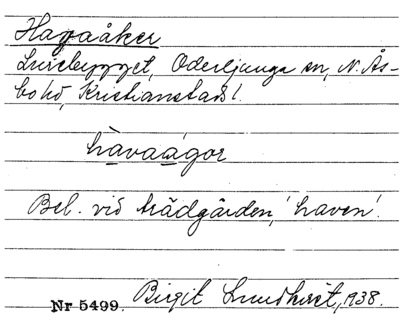 Havaåker
Lursbygget, Oderljunga sn, N. Ås-
bo hd, Kristianstads l.
hàvaágor
Bel. vid trädgården, 'haven'.
Nr 5499. Birgit Lundkvist, 1938.